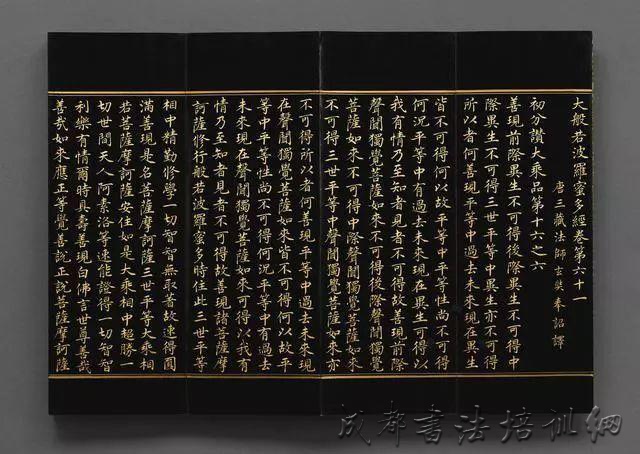 大般若波羅蜜多經卷第六十一
唐三藏法師玄奘奉 詔譯
初分讚大乘品第十六之六
善現前際異生不可得後際異生不可得中
際異生不可得三世平等中異生亦不可得
所以者何善現平等中過去未來現在異生
皆不可得何以故平等中平等性尚不可得
何況平等中有過去未來現在異生可得以
我有情乃至知者見者不可得故善現前際
聲聞獨覺菩薩如來不可得後際聲聞獨覺
菩薩如來不可得中際聲聞獨覺菩薩如來
不可得三世平等中聲聞獨覺菩薩如來亦
不可得所以者何善現平等中過去未來現
在聲聞獨覺菩薩如來皆不可得何以故平
等中平等性尚不可得何況平等中有過去
未來現在聲聞獨覺菩薩如來可得以我有
情乃至知者見者不可得故善現諸菩薩摩
訶薩修行般若波羅蜜多時住此三世平等
相中精勤修學一切智智無取著故速得圓
滿善現是名菩薩摩訶薩三世平等大乘相
若菩薩摩訶薩安住如是大乘相中超勝一
切世間天人阿素洛等速能證得一切智智
利樂有情爾時具壽善現白佛言世尊善哉
善哉如來應正等覺善說正說菩薩摩訶薩
成都書法培訓網